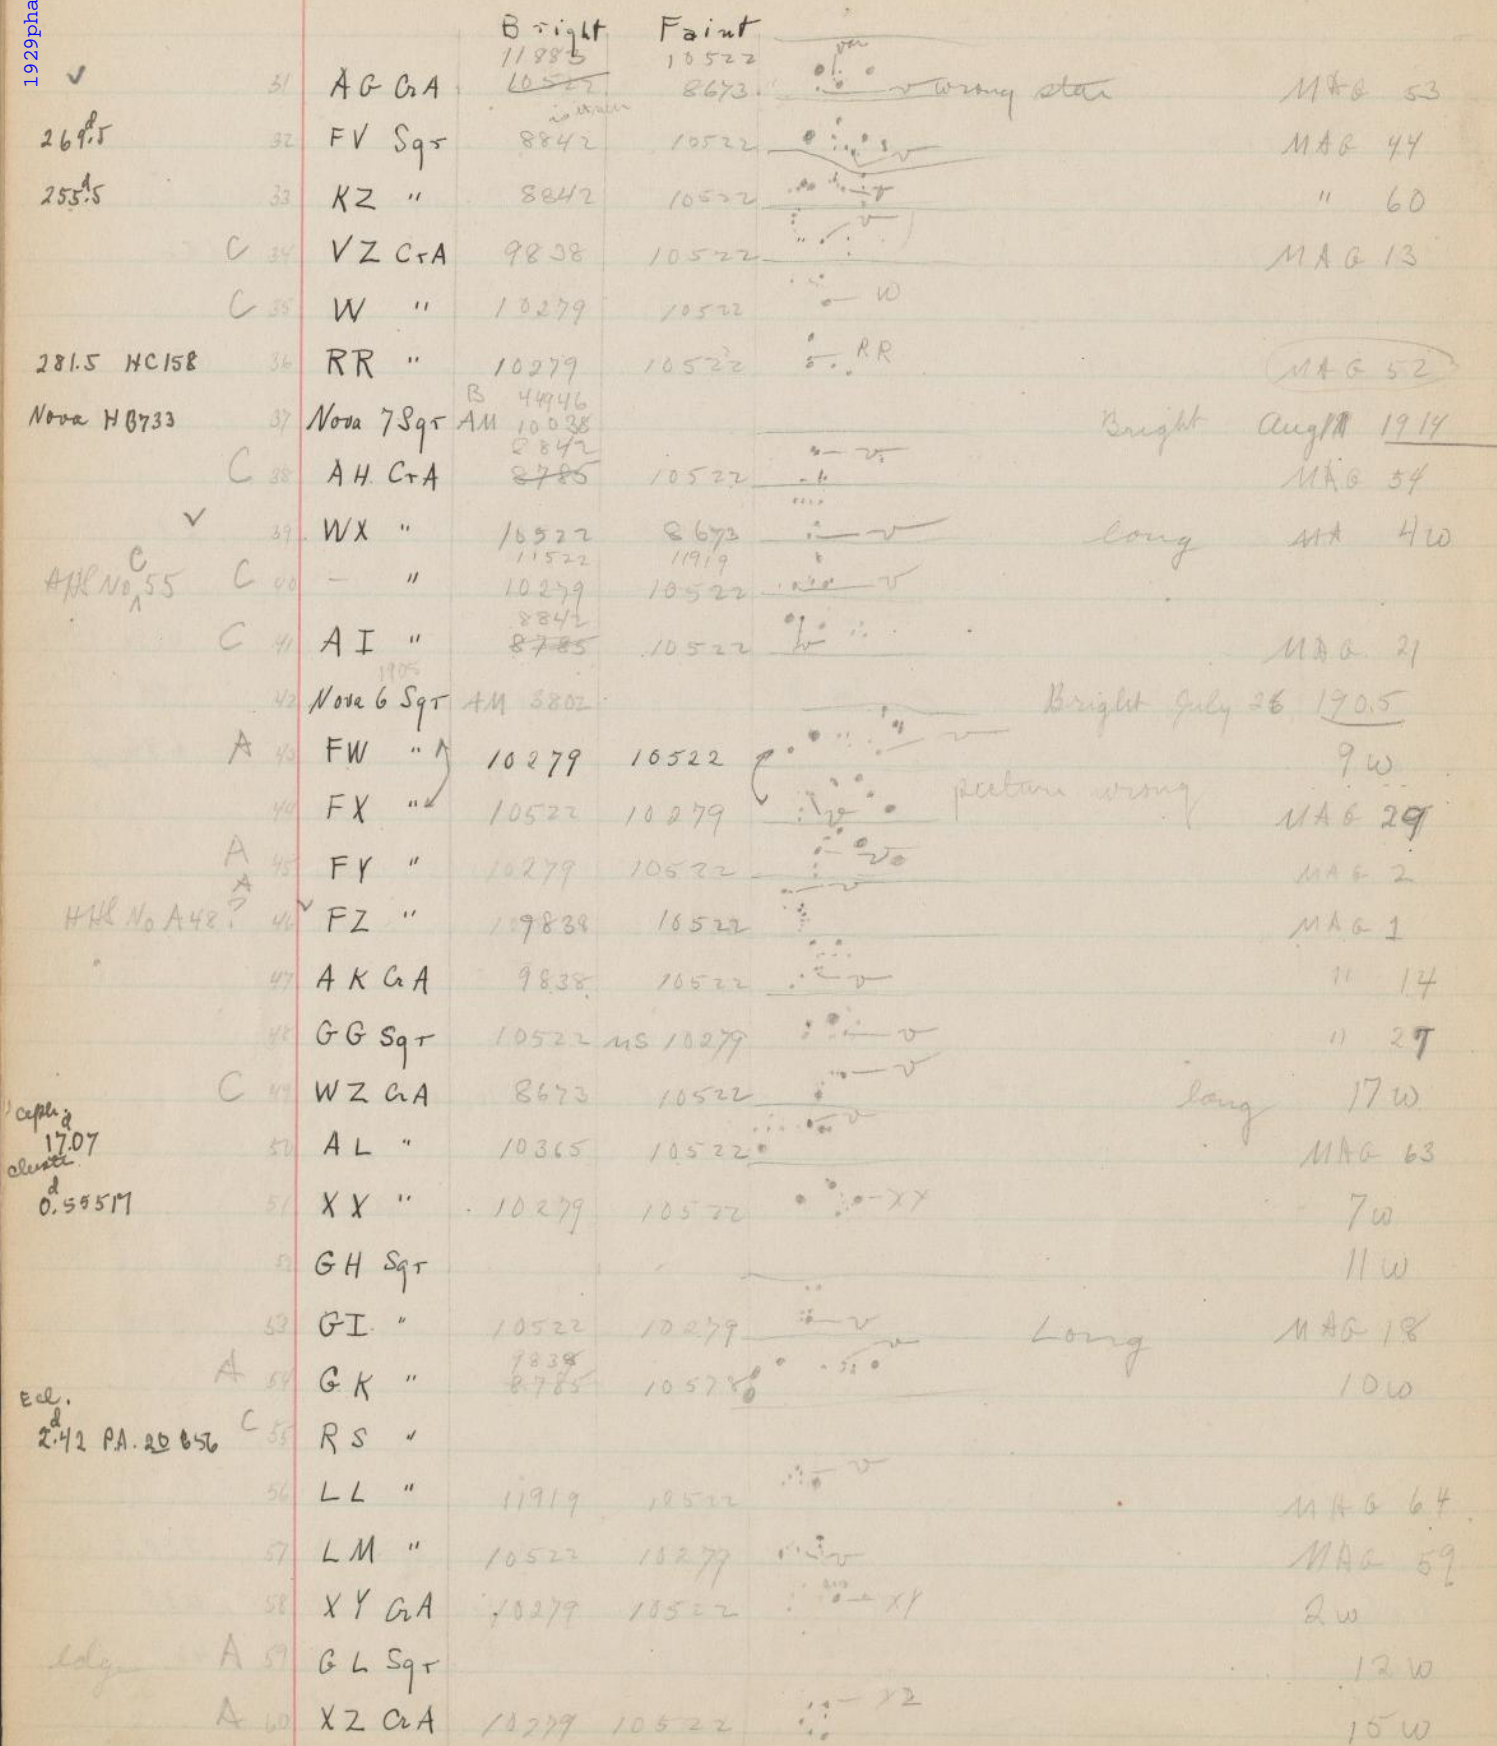 1929pha
Bright Faint
11883 10522 var
✓ 31 AG CrA 10522 8673 v wrong star MAG 53
269.d5 32 FV Sgr 8842 10522 v MAG 44
255.d5 33 KZ " 8842 10522 v " 60
C 34 VZ CrA 9838 10522 v MAG 13
C 35 W " 10279 10522 W
281.5 HC158 36 RR " 10279 10522 RR MAG 52
B 44946
Nova HB733 37 Nova 7 Sgr AM 10038 Bright Aug 1914
8842
C 38 AH CrA 8785 10522 v MAG 54
✓ 39 WX " 10522 8673 v long MA 4w
11522 11919
No C 55 C 40 — " 10279 10522 v
8842
C 41 AI " 8785 10522 v MAG 21
1905
42 Nova 6 Sgr AM 3802 Bright July 26 1905
A 43 FW " 10279 10522 v 9w
44 FX " 10522 10279 v picture wrong MAG 29
A 45 FY " 10279 10522 v MAG 2
A
No A48? 46 ✓ FZ " 9838 10522 v MAG 1
47 AK CrA 9838 10522 v " 14
48 GG Sgr 10522 MS 10279 v " 27
C 49 WZ CrA 8673 10522 v long 17w
ceph.
17.d07 50 AL " 10365 10522 v MAG 63
cluster
0.d55517 51 XX " 10279 10522 XX 7w
52 GH Sgr 11w
53 GI " 10522 10279 v Long MAG 18
9838
A 54 GK " 8785 10578 v 10w
Ecl.
2.d42 P.A. 20 656 C 55 RS "
56 LL " 11919 10522 v MAG 64
57 LM " 10522 10279 v MAG 59
58 XY CrA 10279 10522 XY 2w
edge A 59 GL Sgr 12w
A 60 XZ CrA 10279 10522 XZ 15w